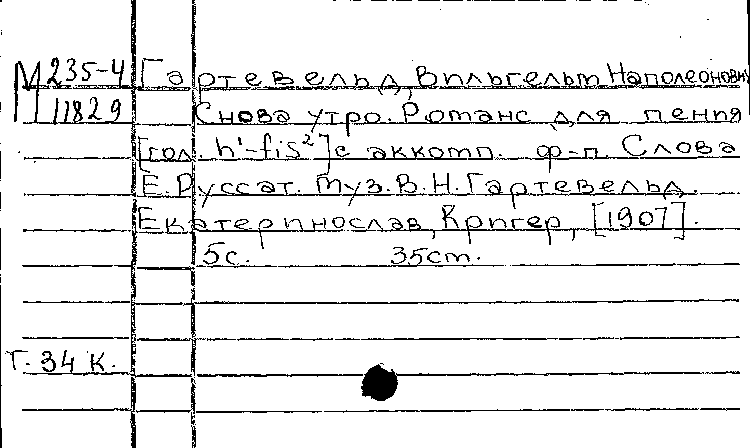 М 235-4 Гартевельд, Вильгельм Наполеонович
11829 Снова утро. Романс для пения
[гол. h'-fis²] с аккомп. ф-п. Слова
Е. Руссат. Муз. В. Н. Гартевельд.
Екатеринослав, Кригер, [1907].
5с. 35см.
Т. 34 К.